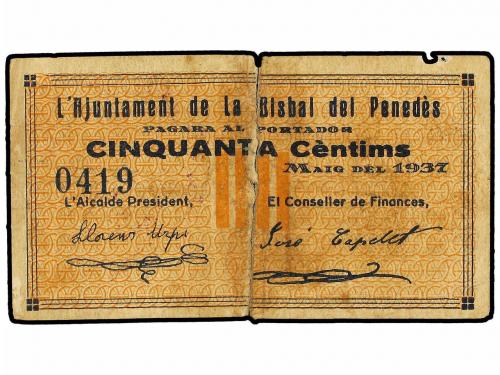 L'Ajuntament de La Bisbal del Penedès
PAGARA AL PORTADOR
CINQUANTA Cèntims
0419
MAIG DEL 1937
L'Alcalde President,
El Conseller de Finances,
Llorens Urpi
José Capellet